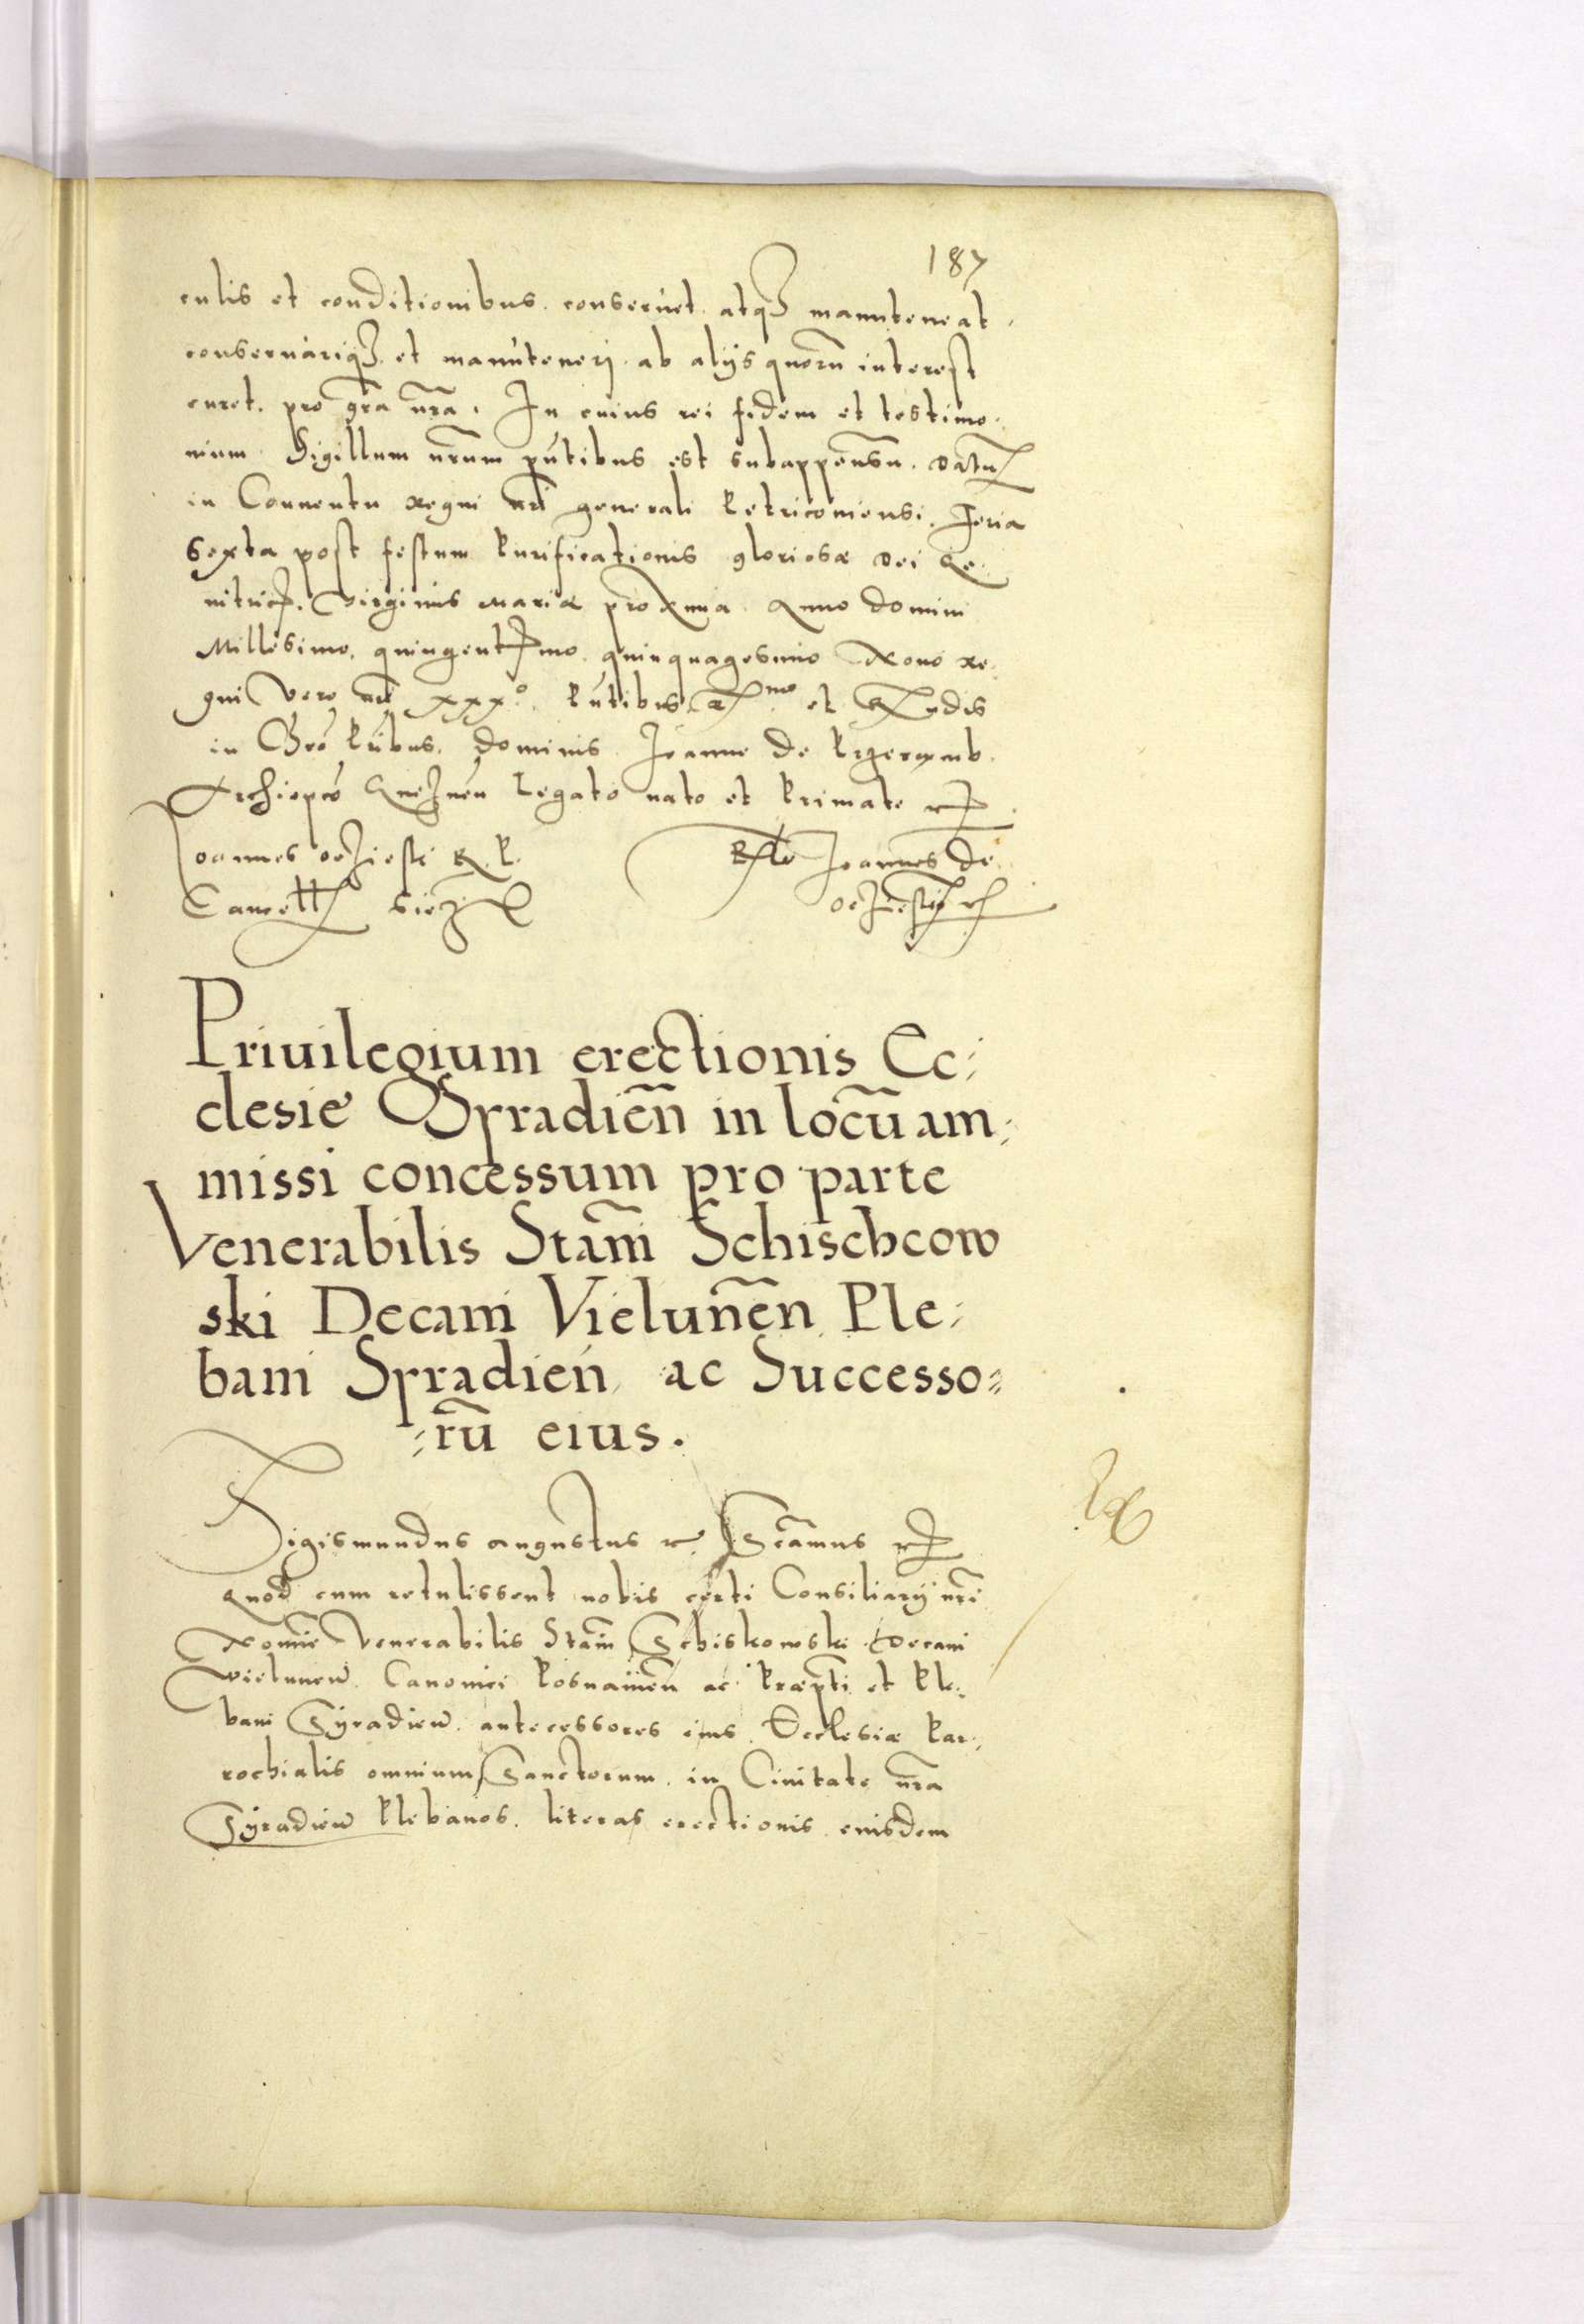 187
culis et conditionibus. conseruet. atq3 manuteneat.
conseruariq3. et manuteneri. ab alijs quorũ interest
curet. pro gr̃a nr̃a. In cuius rei fidem et testimo:
nium. Sigillum nr̃um pñtibus est subappensũ. Datũ
in Conuentu regni nr̃i generali Petricouiensi. Feria
sexta post festum Purificationis gloriosæ Dei Ge:
nitricis. Virginis Mariæ proxima. Anno Domini
Millesimo. quingentesimo. quinquagesimo Nono re:
gni vero nr̃i xxx°. Pñtibus. R^mo et Rñdis
in Chro Pribus. Dominis Joanne de Przeremb.
Archiepõ Gneznẽn Legato nato et Primate
Joannes Oczieski R. P.
Cancell
Rlo Joannes de
Oczieski
Priuilegium erectionis Ec:
clesie Syradieñ in locũ am:
missi concessum pro parte
Venerabilis Stañi Schischcow
ski Decani Vieluneñ Ple:
bani Syradieñ, ac Successo=
=rũ eius.
Sigismundus Augustus Scãmus
Quod cum retulissent nobis certi Consiliarij nr̃i
Nomie Venerabilis Stañi Schiskowski Decani
Vieluneñ. Canonici Posnanieñ ac Præpti et Ple:
bani Syradieñ. antecessores eius. Ecclesiæ Par:
rochialis omnium Sanctorum. in Ciuitate nr̃a
Syradieñ Plebanos. literas erectionis eiusdem